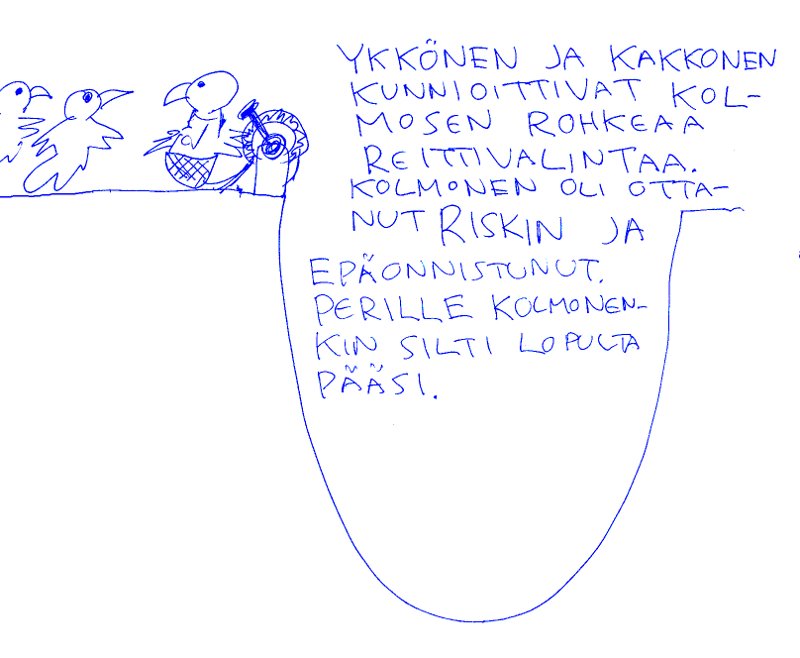 YKKÖNEN JA KAKKONEN
KUNNIOITTIVAT KOL-
MOSEN ROHKEAA
REITTIVALINTAA.
KOLMONEN OLI OTTA-
NUT RISKIN JA
EPÄONNISTUNUT.
PERILLE KOLMONEN-
KIN SILTI LOPULTA
PÄÄSI.